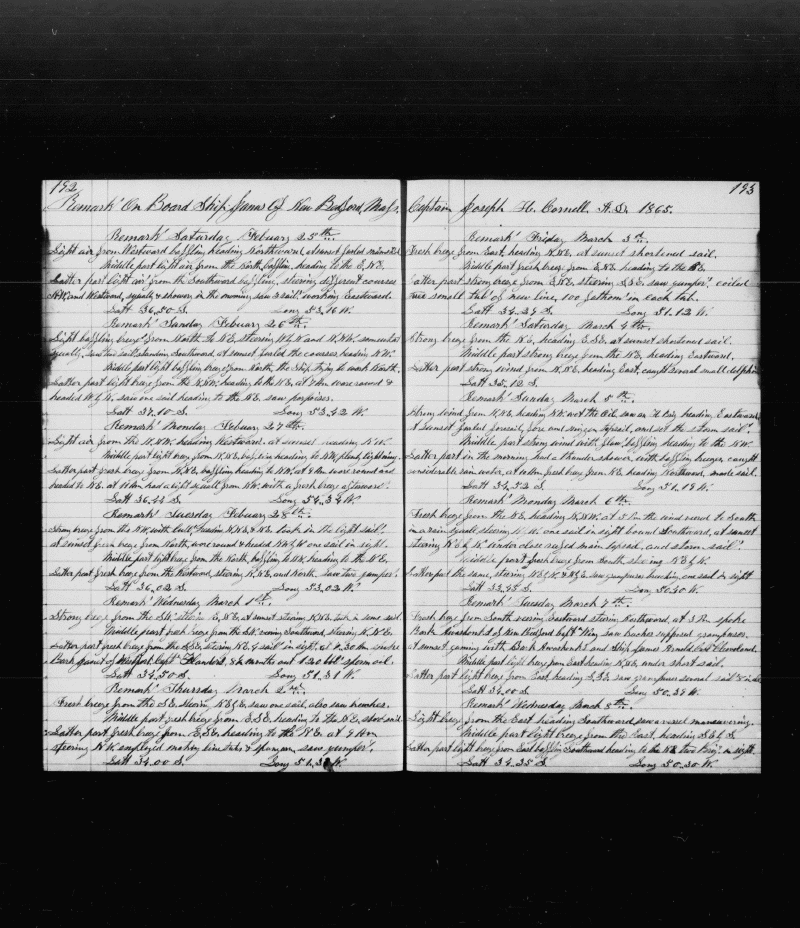 192
Remark's On Board Ship James Of New Bedford, Mass.
Remark's Saturday Febuary 25th
Light air from Westward baffling heading Northward, at sunset furled
Middle part light air from the North, baffling, heading to the E.N.E.
Latter part light air from the Southward baffling, steering different courses
and Westward, squally & shower in the morning saw a sail working Eastward.
Latt 36,50 S. Long 53,16 W.
Remark's Sunday Febuary 26th
Light baffling breeze from North to N.E. steering and N.N.W. somewhat
squally, saw two sail standing Southward, at sunset furled the courses heading N.W.
Middle part light baffling breeze from North, the Ship trying to work North.
Latter part light breeze from the N.N.W. heading to the N.E. at wore round &
headed saw one sail heading to the N.E. saw porpoises.
Latt 37,10 S. Long 53,42 W.
Remark's Monday Febuary 27th
Light air from the N.N.W. heading Westward. at sunset heading
Middle part light breeze from N.N.E. baffling heading to NW, plenty lightning.
Latter part fresh breeze from N.N.E. baffling heading to NW, at wore round and
headed to N.E. at had a light squall from NW. with a fresh breeze
Latt 36,44 S. Long 54,34 W.
Remark's Tuesday Febuary 28th
Strong breeze from the N.W. with heading took in the light sail's
at sunset fresh breeze from North, wore round & headed one sail in sight.
Middle part light breeze from the North, baffling to N.W. heading to the N.E.
Latter part fresh breeze from the Westward, steering N.N.E. and North. saw two
Latt 36,02 S. Long 53,02 W.
Remark's Wednesday March 1st
Strong breeze from the S.W. steering at sunset steering N.N.E. took in some sail
Middle part fresh breeze from the S.W. veering Southward, steering
Latter part fresh breeze from the S.S.E. steering sail in sight, at 9.30 Am spoke
Bark of Westport Capt Flanders, 8 months out 120 bbl's sperm oil.
Latt 34,50 S. Long 51,31 W.
Remark's Thursday March 2nd
Fresh breeze from the S.E. steering saw one sail, also saw breeches.
Middle part fresh breeze from E.S.E. heading to the N.E. short sail
Latter part fresh breeze from E.S.E. heading to the N.E. at 9 Am
steering N.W. employed making & spunyarn, saw
Latt 34.00 S. Long 51,31 W.
193
Captain Joseph H. Cornell 1865.
Remark's Friday March 3d
Fresh breeze from East, heading N.N.E. at sunset shortened sail.
Middle part fresh breeze from E.N.E. heading to the
Latter part strong breeze from E.N.E. steering S.S.E. saw coiled
small tub of new line, 100 fathom's in each tub.
Latt 34.24 S. Long 51.12 W.
Remark's Saturday March 4th
Strong breeze from the N.E. heading E.S.E. at sunset shortened sail.
Middle part strong breeze from the N.E. heading Eastward.
Latter part strong wind from N.N.E. heading East, caught several small dolphin
Latt 35,12 S.
Remark's Sunday March 5th
Strong wind from N.N.E. heading saw an Brig heading Eastward
at sunset furled foresail, fore and topsail, and set the storm sail's
Middle part strong wind with baffling heading to the N.W.
Latter part in the morning had a thunder shower with baffling breezes caught
considerable rain water, at fresh breeze from N.E. heading Northward, made sail.
Latt 34,52 S. Long 51,19 W.
Remark's Monday March 6th
Fresh breeze from the N.E. heading N.N.W. at 3 Pm the wind veered to South
in a rain squall, steering one sail in sight bound Southward, at sunset
steering N.E. by N. under close reefed main topsail, and storm sail's
Middle part fresh breeze from South steering N.E. by N.
Latter part the same, steering saw grampuses breaching one sail in sight
Latt 33.45 S. Long 50.40 W.
Remark's Tuesday March 7th
Fresh breeze from South veering Eastward steering Northward, at 3 Pm spoke
Bark Awashonks of New Bedford Capt Wing saw breaches supposed grampuses.
at sunset gaming with Bark Awashonks and Ship James Arnold Capt Cleveland.
Middle part light breeze from East heading N.N.E. under short sail.
Latter part light breeze from East heading S.S.E. saw grampuses several sail in
Latt 34.00 S. Long 50.34 W.
Remark's Wednesday March 8th
Light breeze from the East heading Southward, saw a vessel maneuvering.
Middle part light breeze from the East, heading S.E. by S.
Latter part light breeze from East baffling Southward heading to the N.E. two Brig's in sight.
Latt 34.35 S Long 50.30 W.